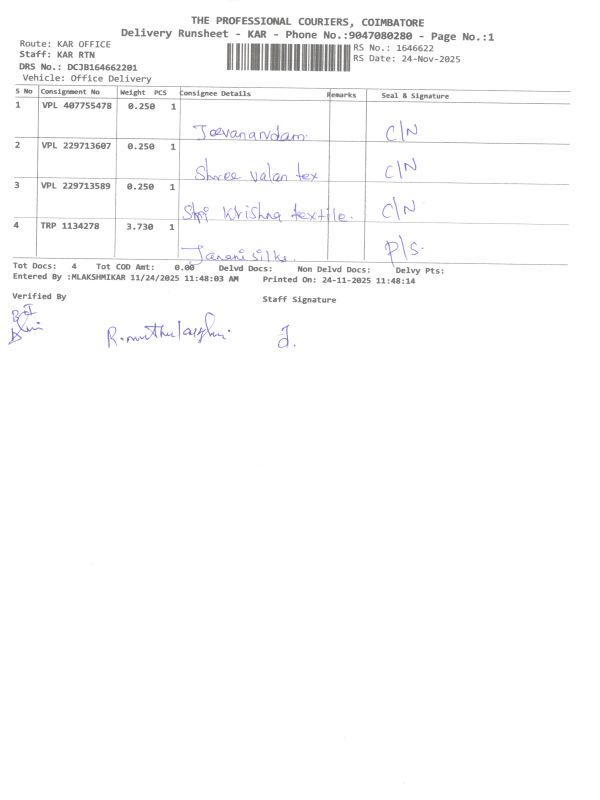 THE PROFESSIONAL COURIERS, COIMBATORE
Delivery Runsheet - KAR - Phone No.:9047080280 - Page No.:1
Route: KAR OFFICE RS No.: 1646622
Staff: KAR RTN RS Date: 24-Nov-2025
DRS No.: DCJB164662201
Vehicle: Office Delivery
S No Consignment No Weight PCS Consignee Details Remarks Seal & Signature
1 VPL 407755478 0.250 1
Jeevanandam. C/N
2 VPL 229713607 0.250 1
Shree Valan tex C/N
3 VPL 229713589 0.250 1
Shri Krishna textile. C/N
4 TRP 1134278 3.730 1
Janani silks. P/S.
Tot Docs: 4 Tot COD Amt: 0.00 Delvd Docs: Non Delvd Docs: Delvy Pts:
Entered By :MLAKSHMIKAR 11/24/2025 11:48:03 AM Printed On: 24-11-2025 11:48:14
Verified By Staff Signature